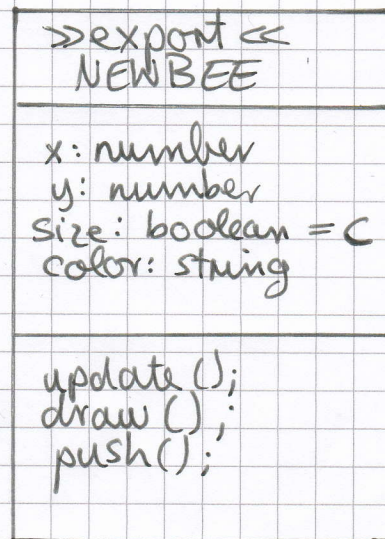 >>export<<
NEWBEE
x: number
y: number
size: boolean = C
color: string
update();
draw();
push();